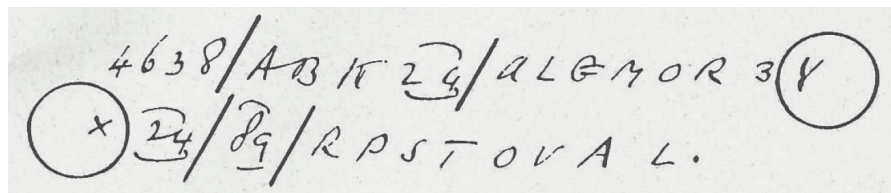 4638/ABK24/ALGMOR3Y
X24/89/RPSTOVAL.